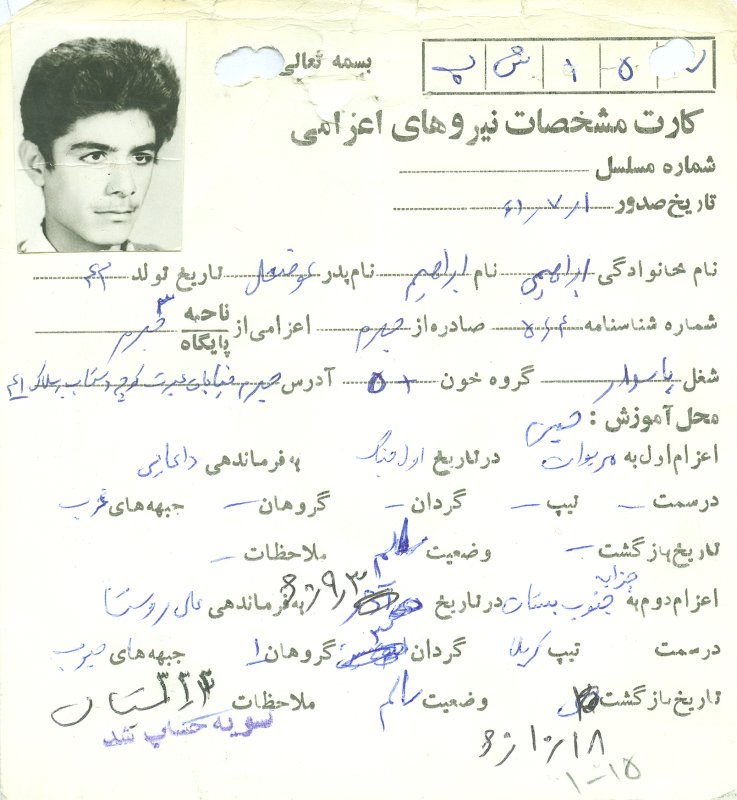 بسمه تعالی
ر ۵ ۱ ش پ
کارت مشخصات نیروهای اعزامی
شماره مسلسل
تاریخ صدور ۶۱/۷/۱
نام خانوادگی ابراهیمی نام ابراهیم نام پدر عوضعلی تاریخ تولد ۴۳
شماره شناسنامه ۵۶۴ صادره از جهرم اعزامی از ناحیه پایگاه ۳ جهرم
شغل پاسدار گروه خون O+ آدرس جهرم خیابان
محل آموزش :
اعزام اول به مریوان در تاریخ اول جنگ به فرماندهی
در سمت - تیپ - گردان - گروهان - جبهه‌های غرب
تاریخ بازگشت - وضعیت سالم ملاحظات -
اعزام دوم به جنوب بستان چزابه در تاریخ به فرماندهی علی روستا
در سمت تیپ کربلا گردان گروهان ۱ جبهه‌های جنوب
تاریخ بازگشت وضعیت سالم ملاحظات
تسویه حساب شد
۱-۱۵